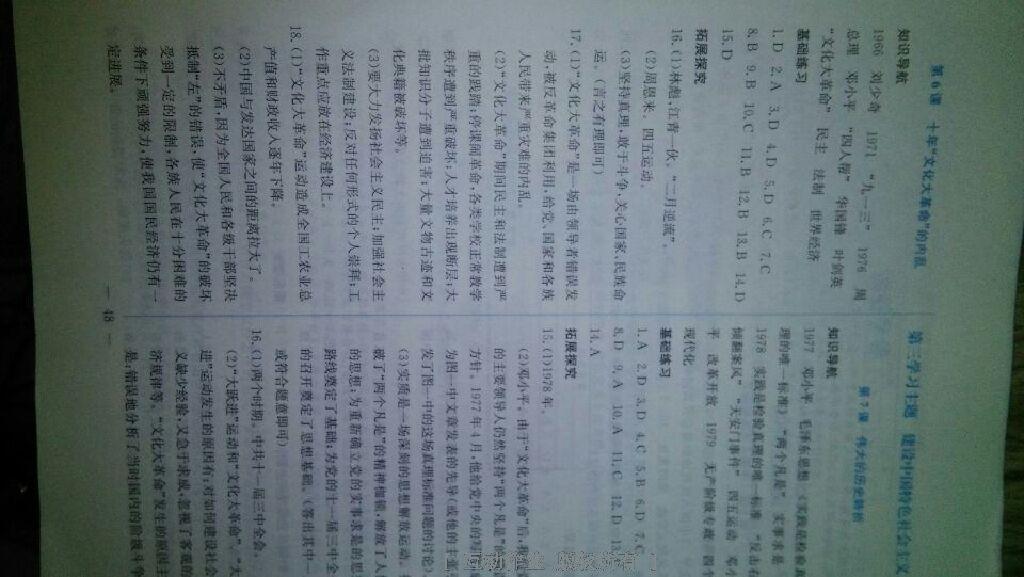 第6课 十年“文化大革命”的内乱
知识导航
1966 刘少奇 1971 “九一三” 1976 周
总理 邓小平 “四人帮” 华国锋 叶剑英
“文化大革命” 民主 法制 世界经济
基础练习
1.D 2.A 3.D 4.D 5.D 6.C 7.C
8.B 9.B 10.C 11.B 12.B 13.B 14.D
15.D
拓展探究
16.(1)林彪、江青一伙。“二月逆流”。
(2)周恩来。四五运动。
(3)坚持真理,敢于斗争,关心国家、民族命
运。(言之有理即可)
17.(1)“文化大革命”是一场由领导者错误发
动,被反革命集团利用,给党、国家和各族
人民带来严重灾难的内乱。
(2)“文化大革命”期间民主和法制遭到严
重的践踏;停课闹革命,各类学校正常教学
秩序遭到严重破坏;人才培养出现断层;大
批知识分子遭到迫害;大量文物古迹和文
化典籍被破坏等。
(3)要大力发扬社会主义民主;加强社会主
义法制建设;反对任何形式的个人崇拜;工
作重点应放在经济建设上。
18.(1)“文化大革命”运动造成全国工农业总
产值和财政收入逐年下降。
(2)中国与发达国家之间的距离拉大了。
(3)不矛盾,因为全国人民和各级干部坚决
抵制“左”的错误,使“文化大革命”的破坏
受到一定的限制;各族人民在十分困难的
条件下顽强努力,使我国国民经济仍有一
定进展。
第三学习主题 建设中国特色社会主义
第7课 伟大的历史转折
知识导航
1977 邓小平 毛泽东思想 《实践是检验真
理的唯一标准》 “两个凡是” 实事求是
1978 实践是检验真理的唯一标准 “反击右
倾翻案风” “天安门事件” 四五运动 邓小
平 改革开放 1979 无产阶级专政 四个
现代化
基础练习
1.A 2.D 3.D 4.C 5.B 6.D 7.
8.D 9.A 10.A 11.C 12.D 1
14.A
拓展探究
15.(1)1978年。
(2)邓小平。由于“文化大革命”后,
的主要领导人仍然坚持“两个凡是”
方针。1977年4月,他给党中央的
为图一中文章发表的先导(或他的主
发了图一中的这场真理标准问题的讨论)
(3)实质是一场深刻的思想解放运动。
破了“两个凡是”的精神枷锁,解放了人
的思想;为重新确立党的实事求是的思
路线奠定了基础;为党的十一届三中全
的召开奠定了思想基础。(答出其中一
或符合题意即可)
16.(1)两个时期。中共十一届三中全会。
(2)“大跃进”运动和“文化大革命”。“大
进”运动发生的原因有:对如何建设社会
义缺少经验,又急于求成,忽视了客观的
济规律等。“文化大革命”发生的原因主
是:错误地分析了当时国内的阶级斗争
— 48 —
[ 互动作业 版权所有 ]